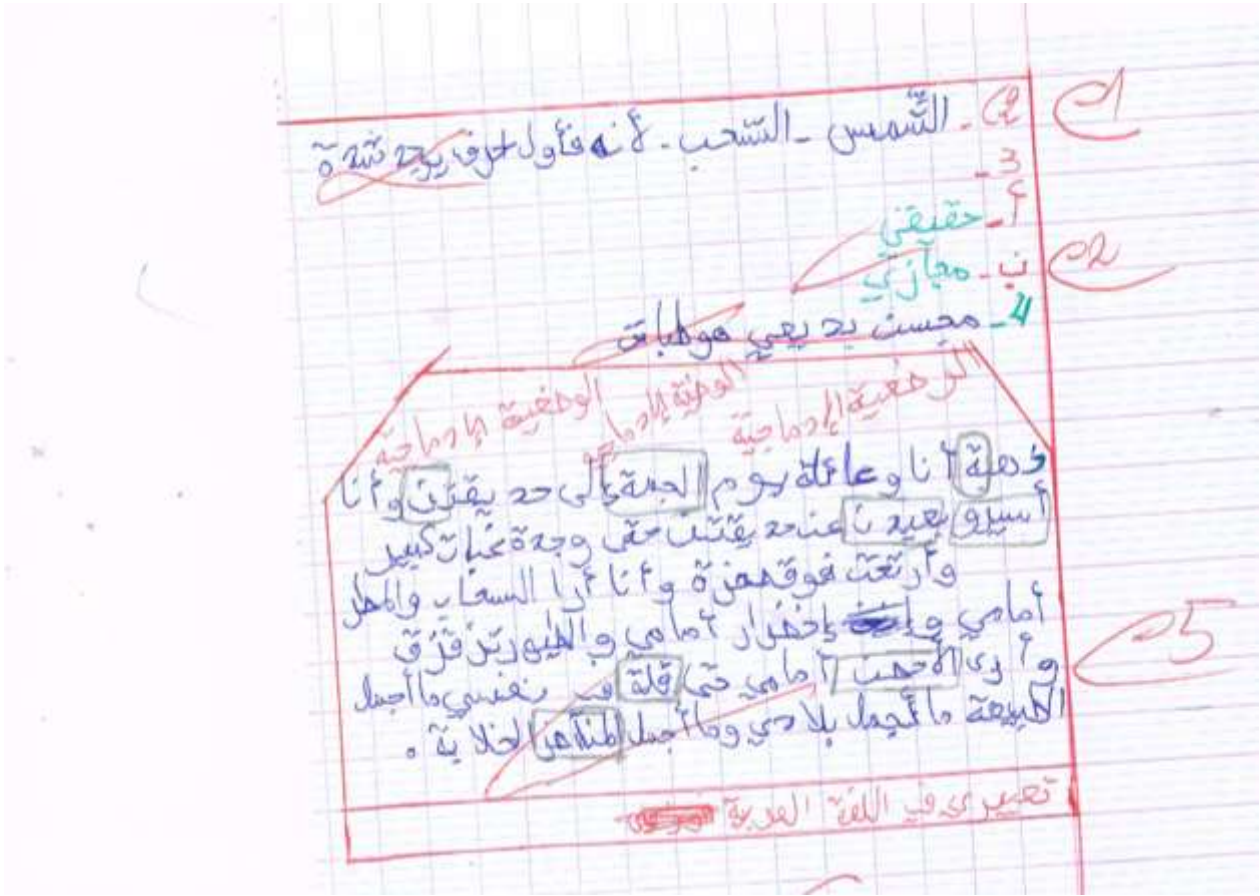 2 - الشّمس - السّحب - لأنه فأول حرف يوجد شدة
3 -
أ - حقيقي
ب - مجازي
4 - محسن بديعي هو طباق
الوضعية الإدماجية
ذهبة أنا وعائلة يوم الجمعة إلى حديقتن وأنا
أسير بعيدن عن حديقتن حتى وجدة نبات كبير
فوق صخرة وأنا أرا السحاب والمطر
أمامي و إخضرار أمامي والطيور تزقزق
وأرى أمامي حتى قلة في نفسي ما أجمل
الطبيعة ما أجمل بلادي وما أجمل المناضر الخلابة .
تعبيري في اللغة العربية